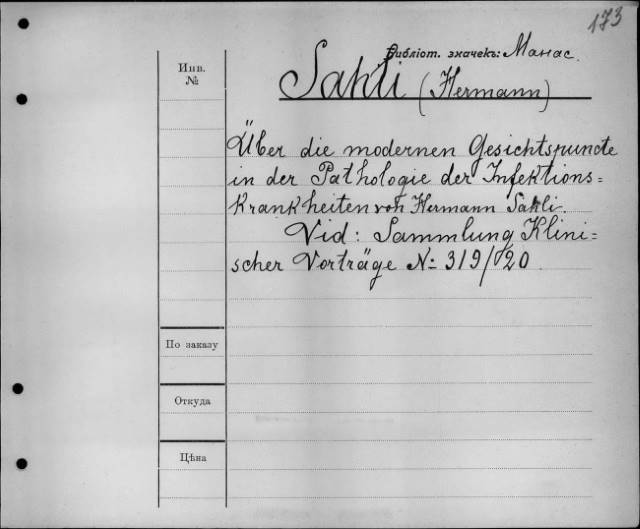 173
Библіот. значекъ: Манас.
Инв.
№
Sahli (Hermann)
Über die modernen Gesichtspuncte
in der Pathologie der Infektions=
krankheiten von Hermann Sahli.
Vid: Sammlung Klini=
scher Vorträge №: 319/20
По заказу
Откуда
Цѣна